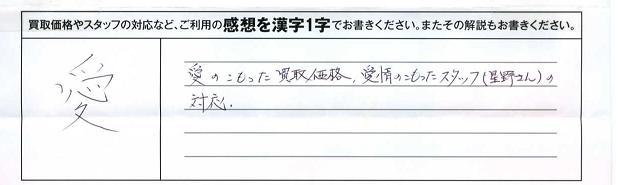 買取価格やスタッフの対応など、ご利用の感想を漢字1字でお書きください。またその解説もお書きください。
愛
愛のこもった買取価格、愛情のこもったスタッフ(星野さん)の
対応.